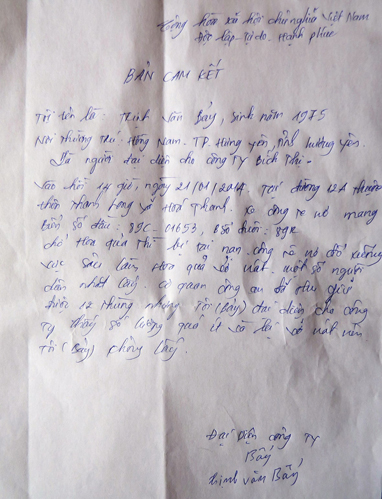 Cộng hòa xã hội chủ nghĩa Việt Nam
Độc lập - Tự do - Hạnh phúc
BẢN CAM KẾT
Tôi tên là: Trịnh Văn Bảy, sinh năm 1975
Nơi thường trú: Hồng Nam - TP Hưng Yên, tỉnh Hưng Yên.
Là người đại diện cho công TY Bích Thị -
Vào hồi 14 giờ, ngày 21/01/2014. Tại đường 12A thuộc
thôn Thanh Long xã Hoá Thanh. Xe công te nơ mang
Biển số đầu: 89C - 01653, BSố đuôi: 89R
chở Hoa quả thì bị tai nạn. công te nơ đổ xuống
vực sâu làm Hoa quả vỡ nát. một số người
dân nhặt lấy, cơ quan công an đã thu giữ
được 12 thùng nhưng Tôi (Bảy) đại diện cho công
Ty thấy số lượng quả ít và lại vỡ nát nên
Tôi (Bảy) không lấy.
Đại Diện công TY
Bảy
Trịnh Văn Bảy